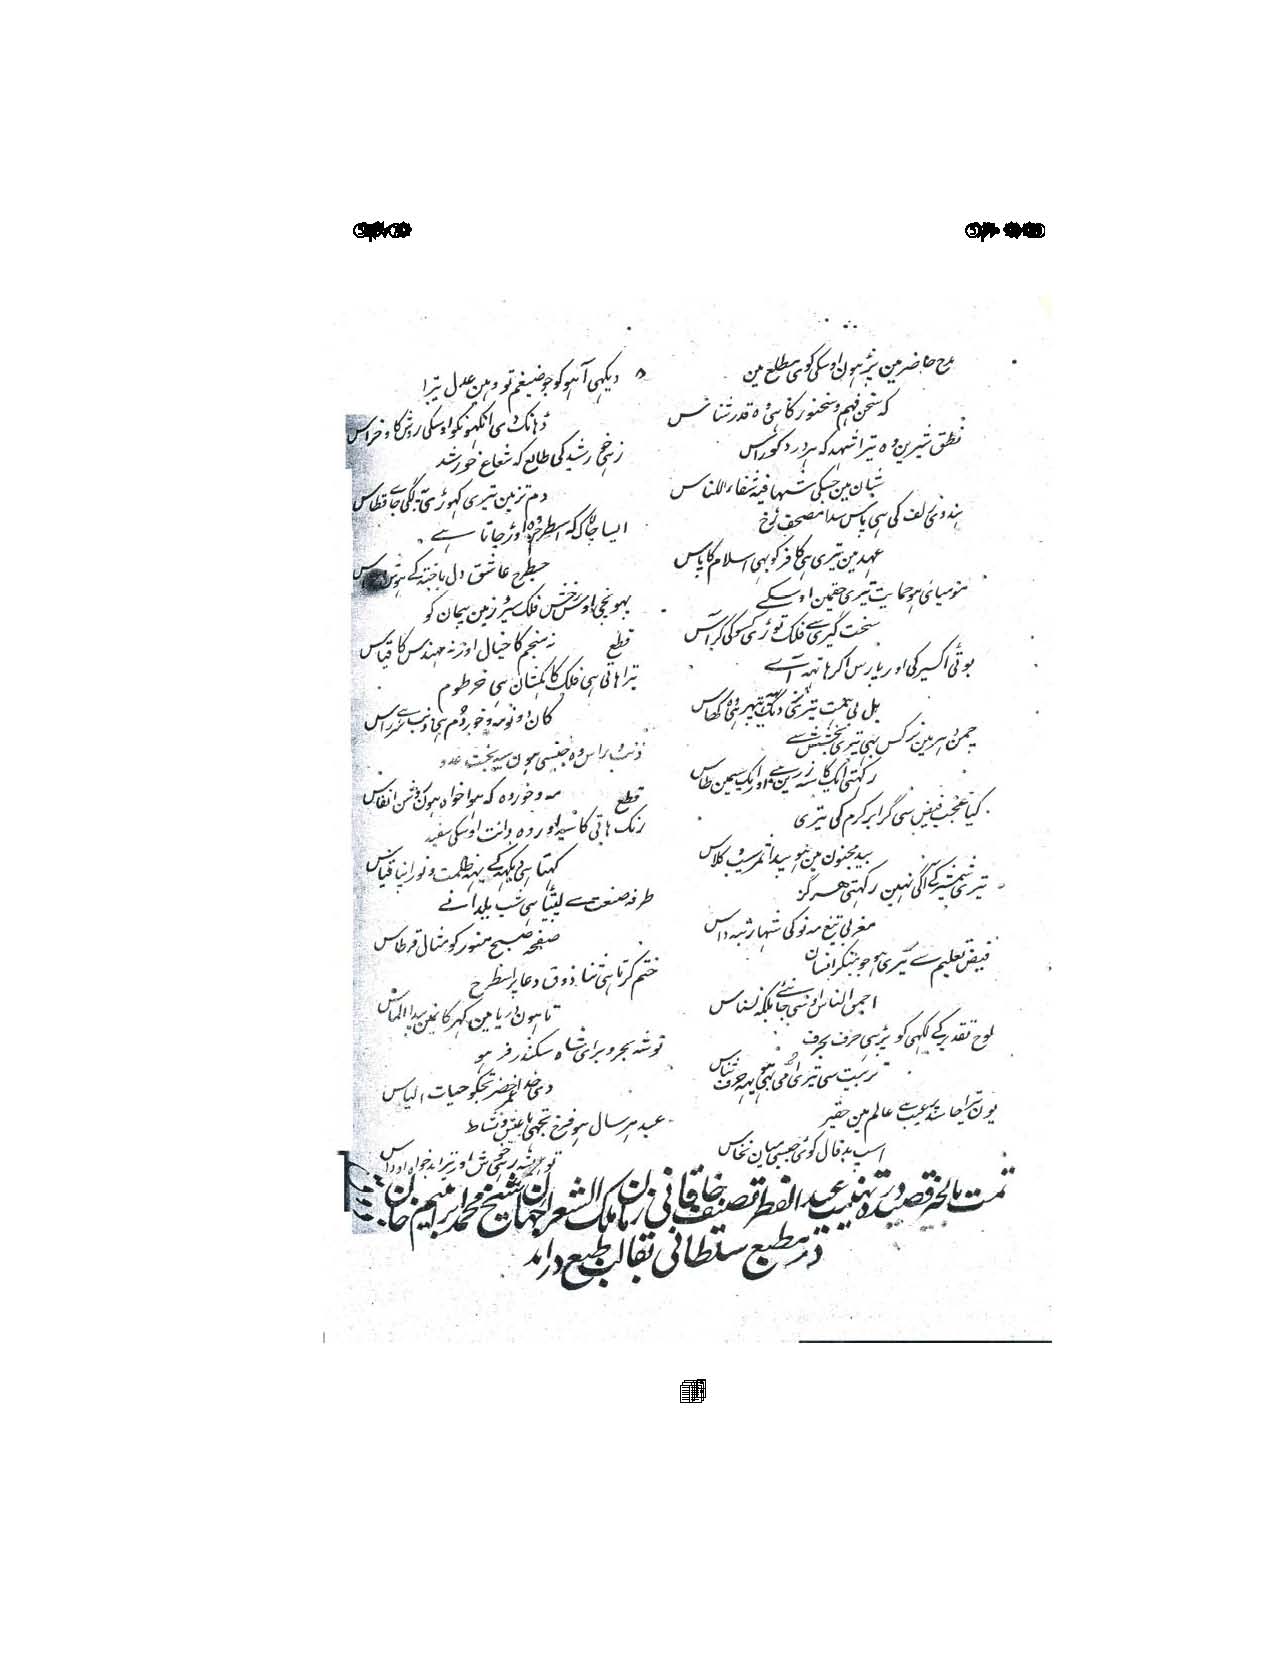 مدح حاضر مین پڑہون اوسکی کوی مطلع مین
کہ سخن فہم و سخنور کا ہی وہ قدر شناس
نطق شیرین وہ تیرا شہد کہ ہر درد کو راس
شبان مین جسکی شہا فیہ شفاء للناس
ہندوی زلف کی ہی پاس سدا مصحف رخ
عہد مین تیری ہی کافر کو بہی اسلام کا پاس
مومیائی ہو حمایت تیری حقمین اوسکے
سخت گیری سے فلک توڑی کسوکی گر آس
بوٹی اکسیر کی اور پارس اگر ہاتہہ آے
بل بی ہمت تیری نزدیک تیہر ہی وہ گھاس
چمن دہر مین نرکس بہی تیری بخشش سے
رکہتی ایک کاسہ زرین ہے اور ایک سیمین طاس
کیا عجب فیض سی گر ابر کرم کی تیری
بید مجنون مین ہو پیدا ثمر سیب و کلاس
تیری شمشیر کے آگی نہین رکہتی ہرگز
مغربی تیغ مہ نو کی شہا رتبہ داس
فیض تعلیم سے تیری ہو جو بنکر انسان
اجمی الناس اونسی جانئے بلکہ نسناس
لوح تقدیر کے لکہی کو پڑہی حرف بحرف
تربیت سی تیری امی بہی ہو یہہ حرف شناس
یون تیرا حاسد پر عیب ہے عالم مین حقیر
اسپ بد فال کوئی جیسی میان نخاس
دیکہی آہو کو جو ضیغم تو وہین عدل تیرا
ڈہانک دی انکہونکو اوسکی روش کاو خراس
زہی رخش رشید کی طالع کہ شعاع خورشد
دم تزئین تیری کہوڑی کی لگی جاے قطاس
ایسا چالاک کہ اسطرح وہ اوڑ جاتا ہے
جسطرح عاشق دل باختہ کے ہوش و حواس
پہونچی اوس رخش فلک سیر و زمین پیمان کو
نہ منجم کا خیال اور نہ مہندس کا قیاس
قطع
تیرا ہاتی ہی فلک کاہکشان ہی خرطوم
کان و نومہ و خور دم ہی ذنب ہے سرراس
ذنب و راس وہ جیسی ہون سیہ بخت عدو
مہ و خور وہ کہ ہوا خواہ ہون روشن انفاس
قطع
رنک ہاتی کا سیہ اور وہ دانت اوسکی سفید
کہتا ہی دیکہہ کے یہہ ظلمت و نور اپنا قیاس
طرفہ صنعت سے لپیٹا ہی شب یلدا نے
صفحہ صبح منور کو مثال قرطاس
ختم کرتا ہی ثنا ذوق دعا پر اسطرح
تا ہون دریا مین گہر کان مین پیدا الماس
تو شہ بحر و بر ای شاہ سکندر فر ہو
دی خدا عمر خضر تجکو حیات الیاس
عید ہر سال ہو فرخ تجہی با عیش و نشاط
تو ہمیشہ رہی خوش اور تیرا بد خواہ اوداس
تمت بالخیر قصیدہ در تہنیت عید الفطر تصنیف خاقانی زمان ملک الشعرا جہان شیخ محمد ابراہیم خان
در مطبع سلطانی بقالب طبع درامد